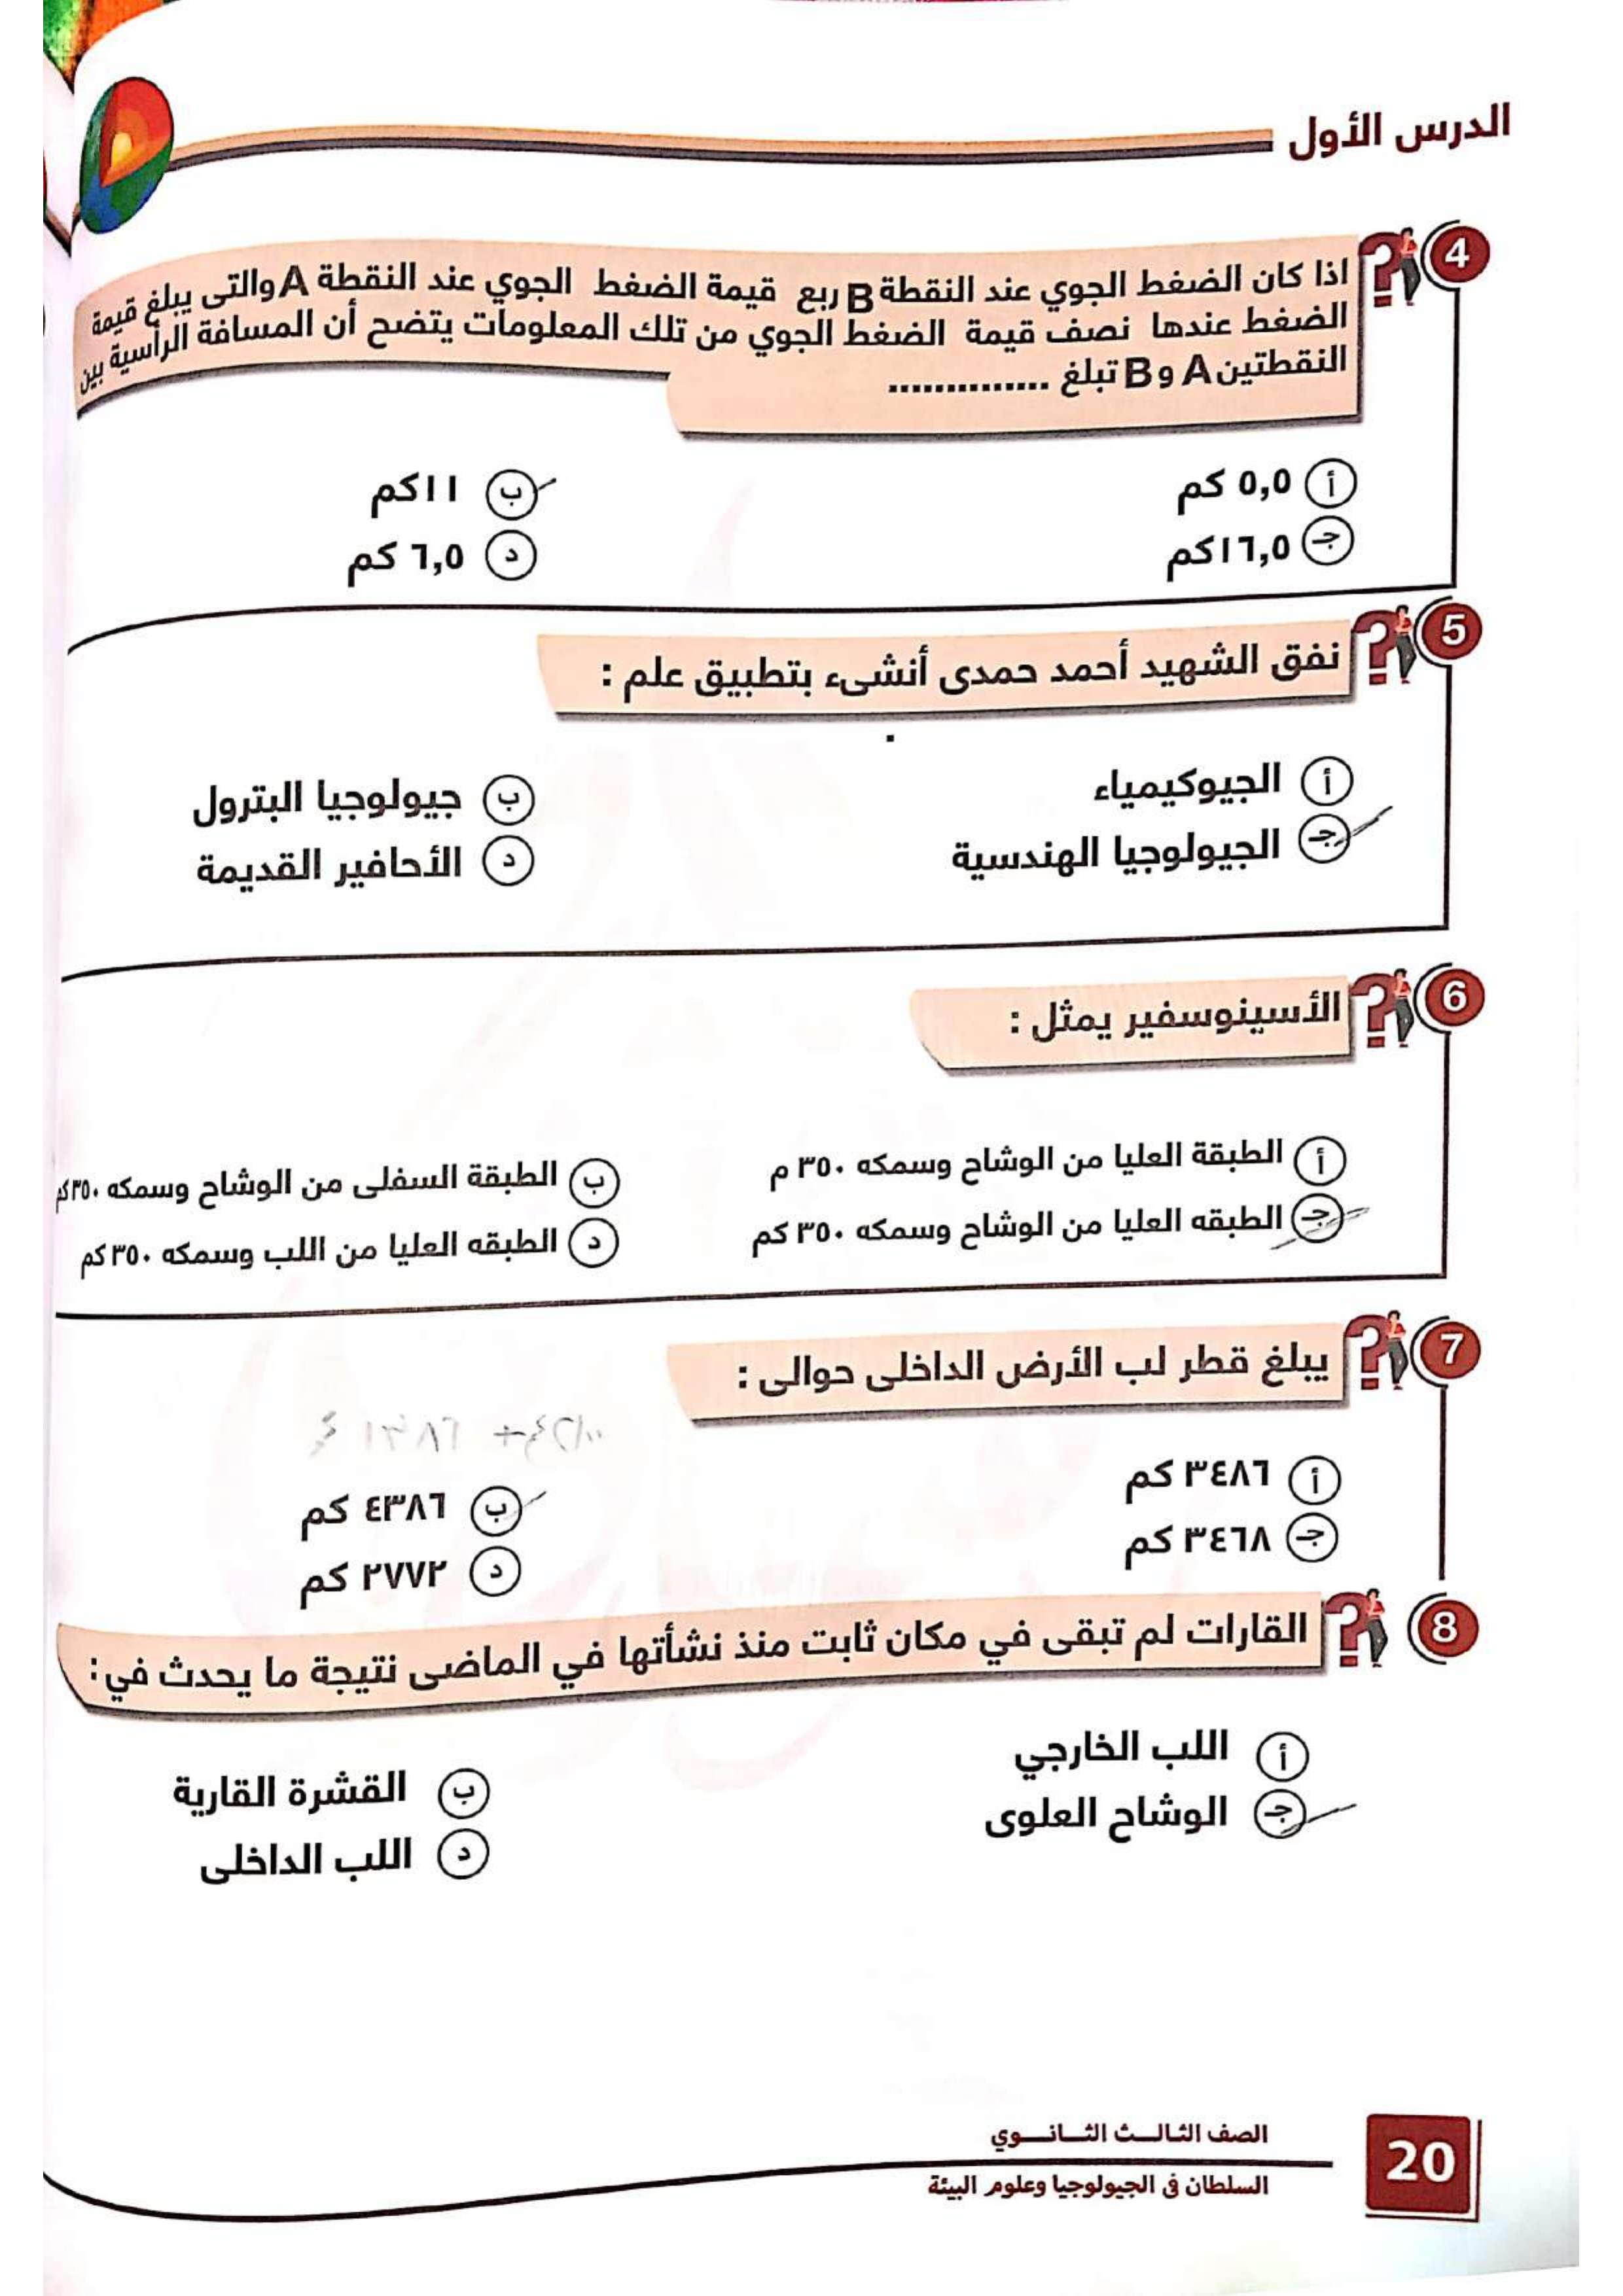 الدرس الأول
4
اذا كان الضغط الجوي عند النقطة B ربع قيمة الضغط الجوي عند النقطة A والتى يبلغ قيمة
الضغط عندها نصف قيمة الضغط الجوي من تلك المعلومات يتضح أن المسافة الرأسية بين
النقطتين A و B تبلغ ..............
أ ٥,٥ كم
ب ١١ كم
جـ ١٦,٥ كم
د ٦,٥ كم
5
نفق الشهيد أحمد حمدى أنشىء بتطبيق علم :
أ الجيوكيمياء
ب جيولوجيا البترول
جـ الجيولوجيا الهندسية
د الأحافير القديمة
6
الأسينوسفير يمثل :
أ الطبقة العليا من الوشاح وسمكه ٣٥٠ م
ب الطبقة السفلى من الوشاح وسمكه ٣٥٠ كم
جـ الطبقه العليا من الوشاح وسمكه ٣٥٠ كم
د الطبقه العليا من اللب وسمكه ٣٥٠ كم
7
يبلغ قطر لب الأرض الداخلى حوالى :
أ ٣٤٨٦ كم
ب ٤٣٨٦ كم
جـ ٣٤٦٨ كم
د ٢٧٧٢ كم
8
القارات لم تبقى في مكان ثابت منذ نشأتها في الماضى نتيجة ما يحدث في :
أ اللب الخارجي
ب القشرة القارية
جـ الوشاح العلوى
د اللب الداخلى
الصف الثالث الثانوي
السلطان في الجيولوجيا وعلوم البيئة
20